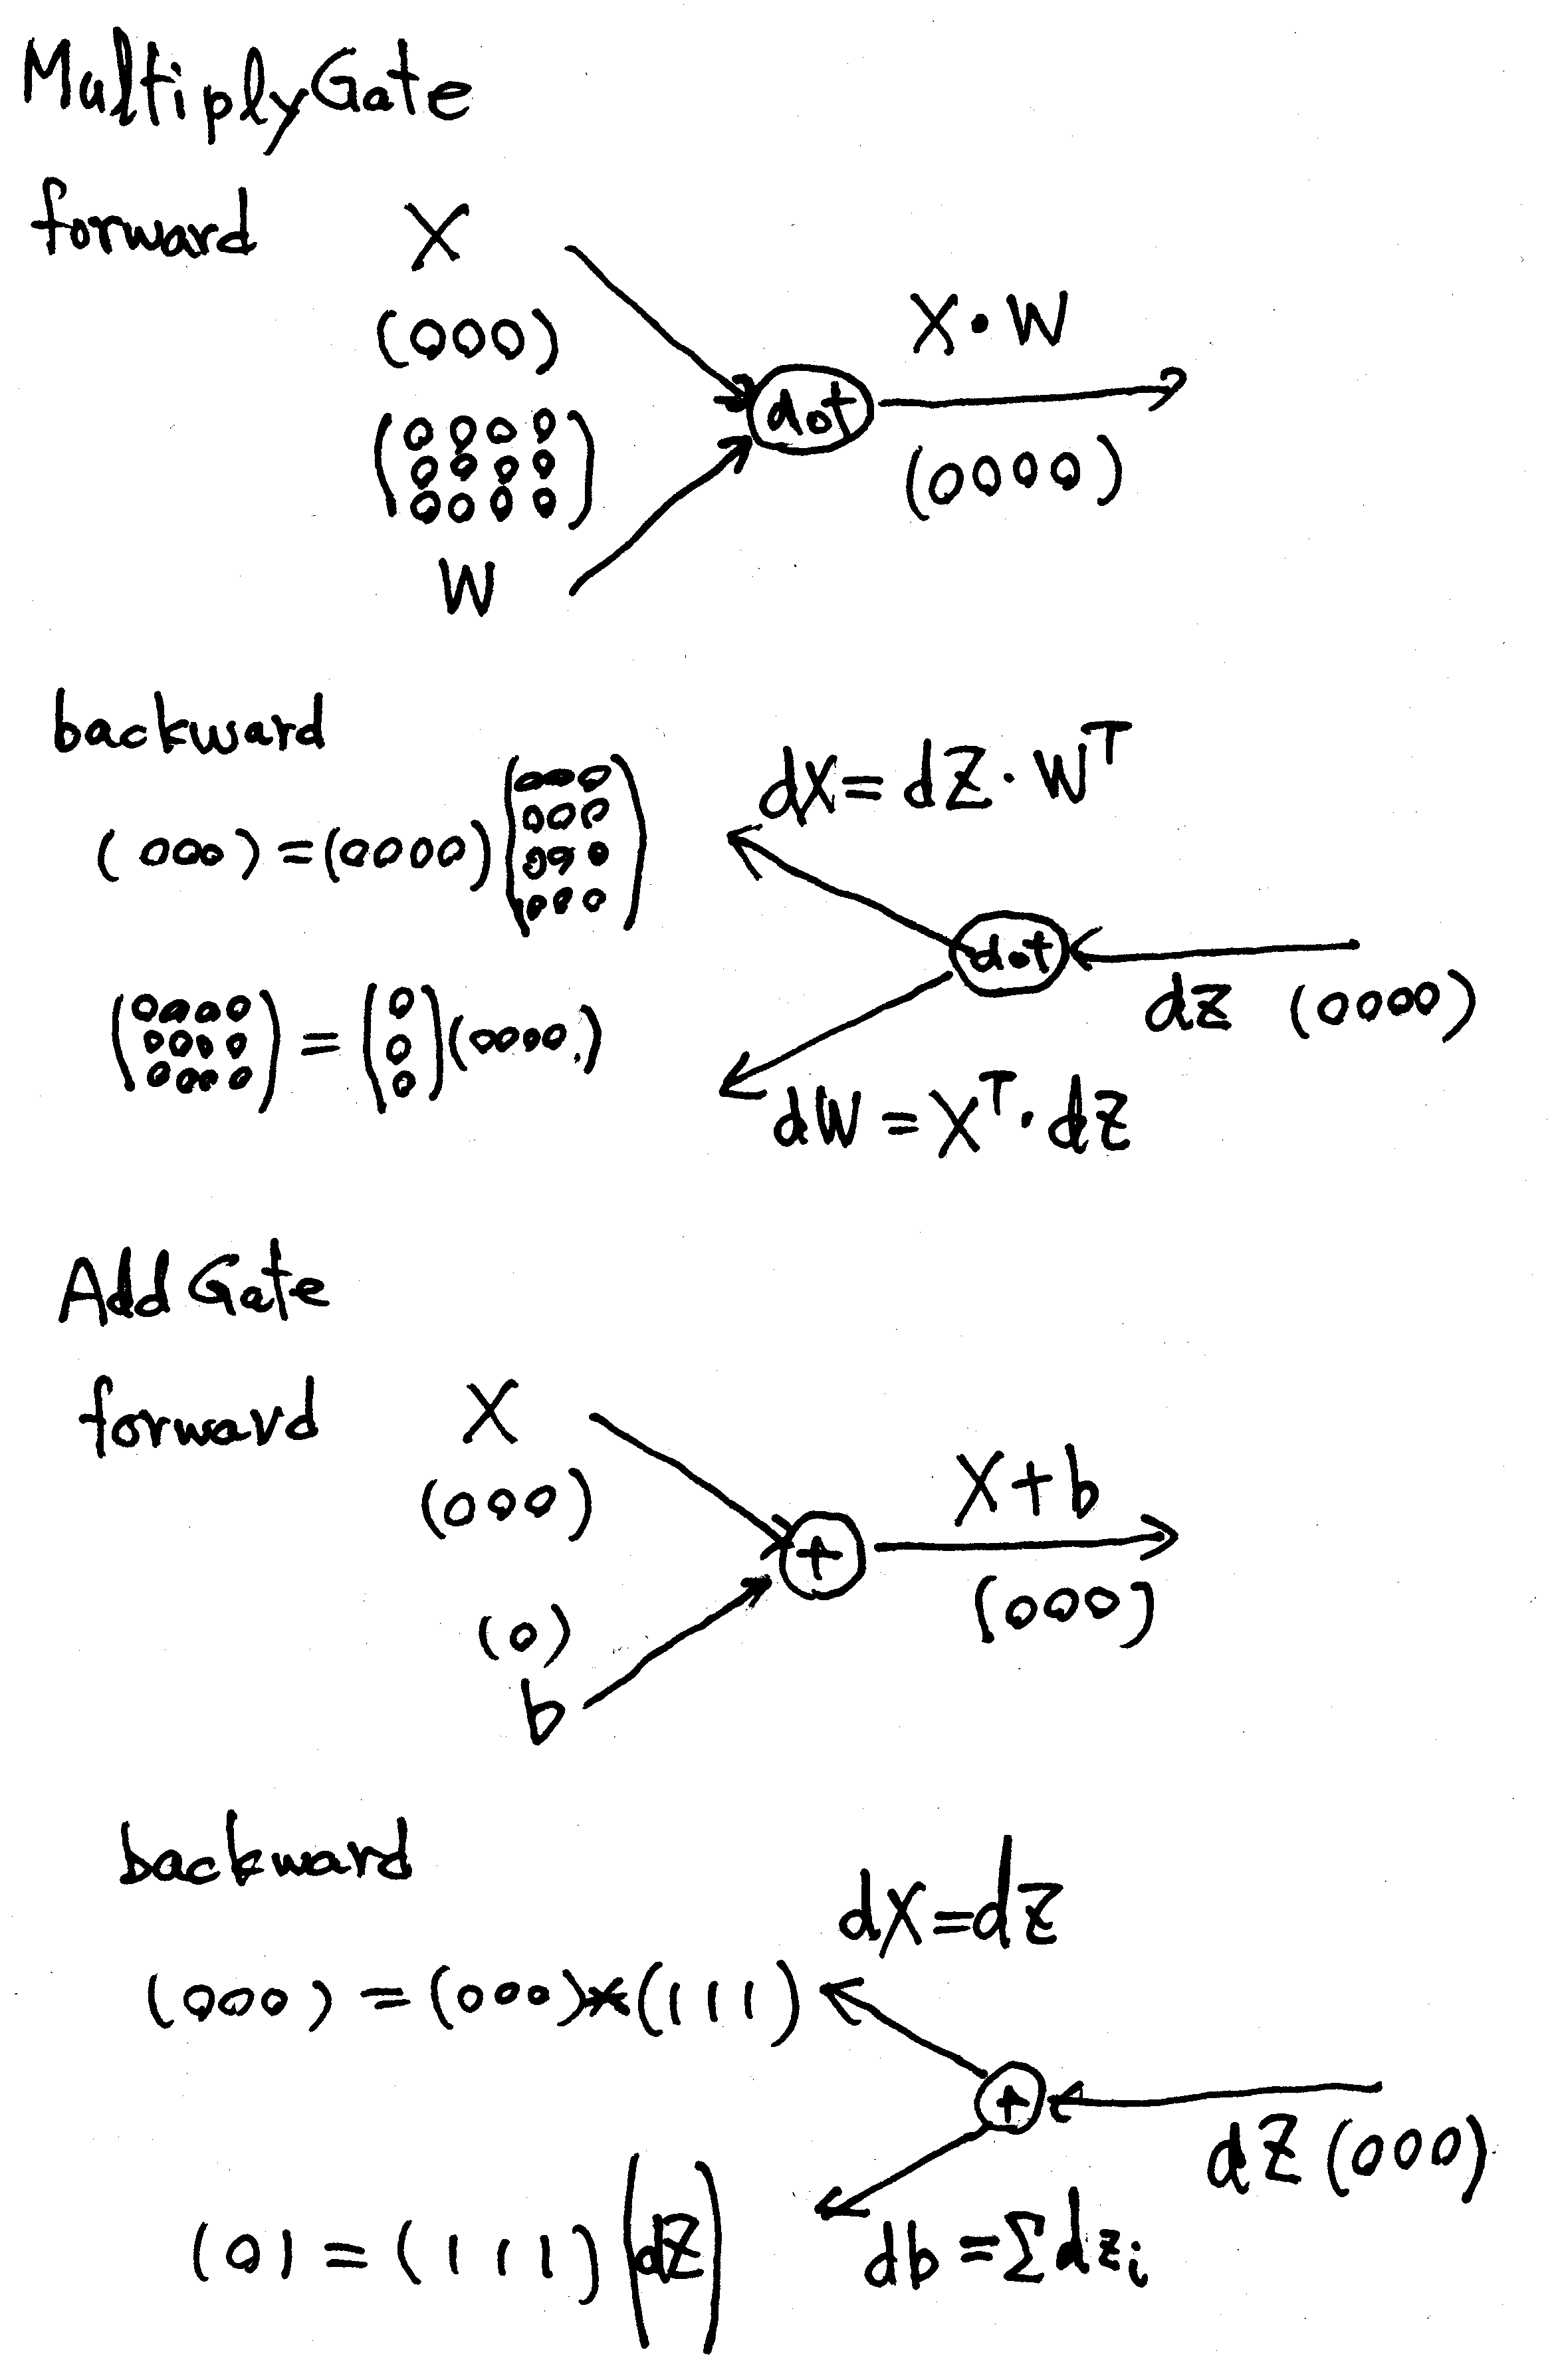 MultiplyGate
forward X
(000)
X·W
dot
(0000)
(0000
0000
0000)
W
backward
dX = dZ · W^T
(000) = (0000) (000
000
000
000)
dot
dz (0000)
(0000
0000
0000) = (0
0
0) (0000)
dW = X^T · dz
Add Gate
forward X
(000)
X+b
+
(000)
(0)
b
backward
dX=dz
(000) = (000)*(111)
+
dZ (000)
(0) = (111) (dZ)
db = Σdzi